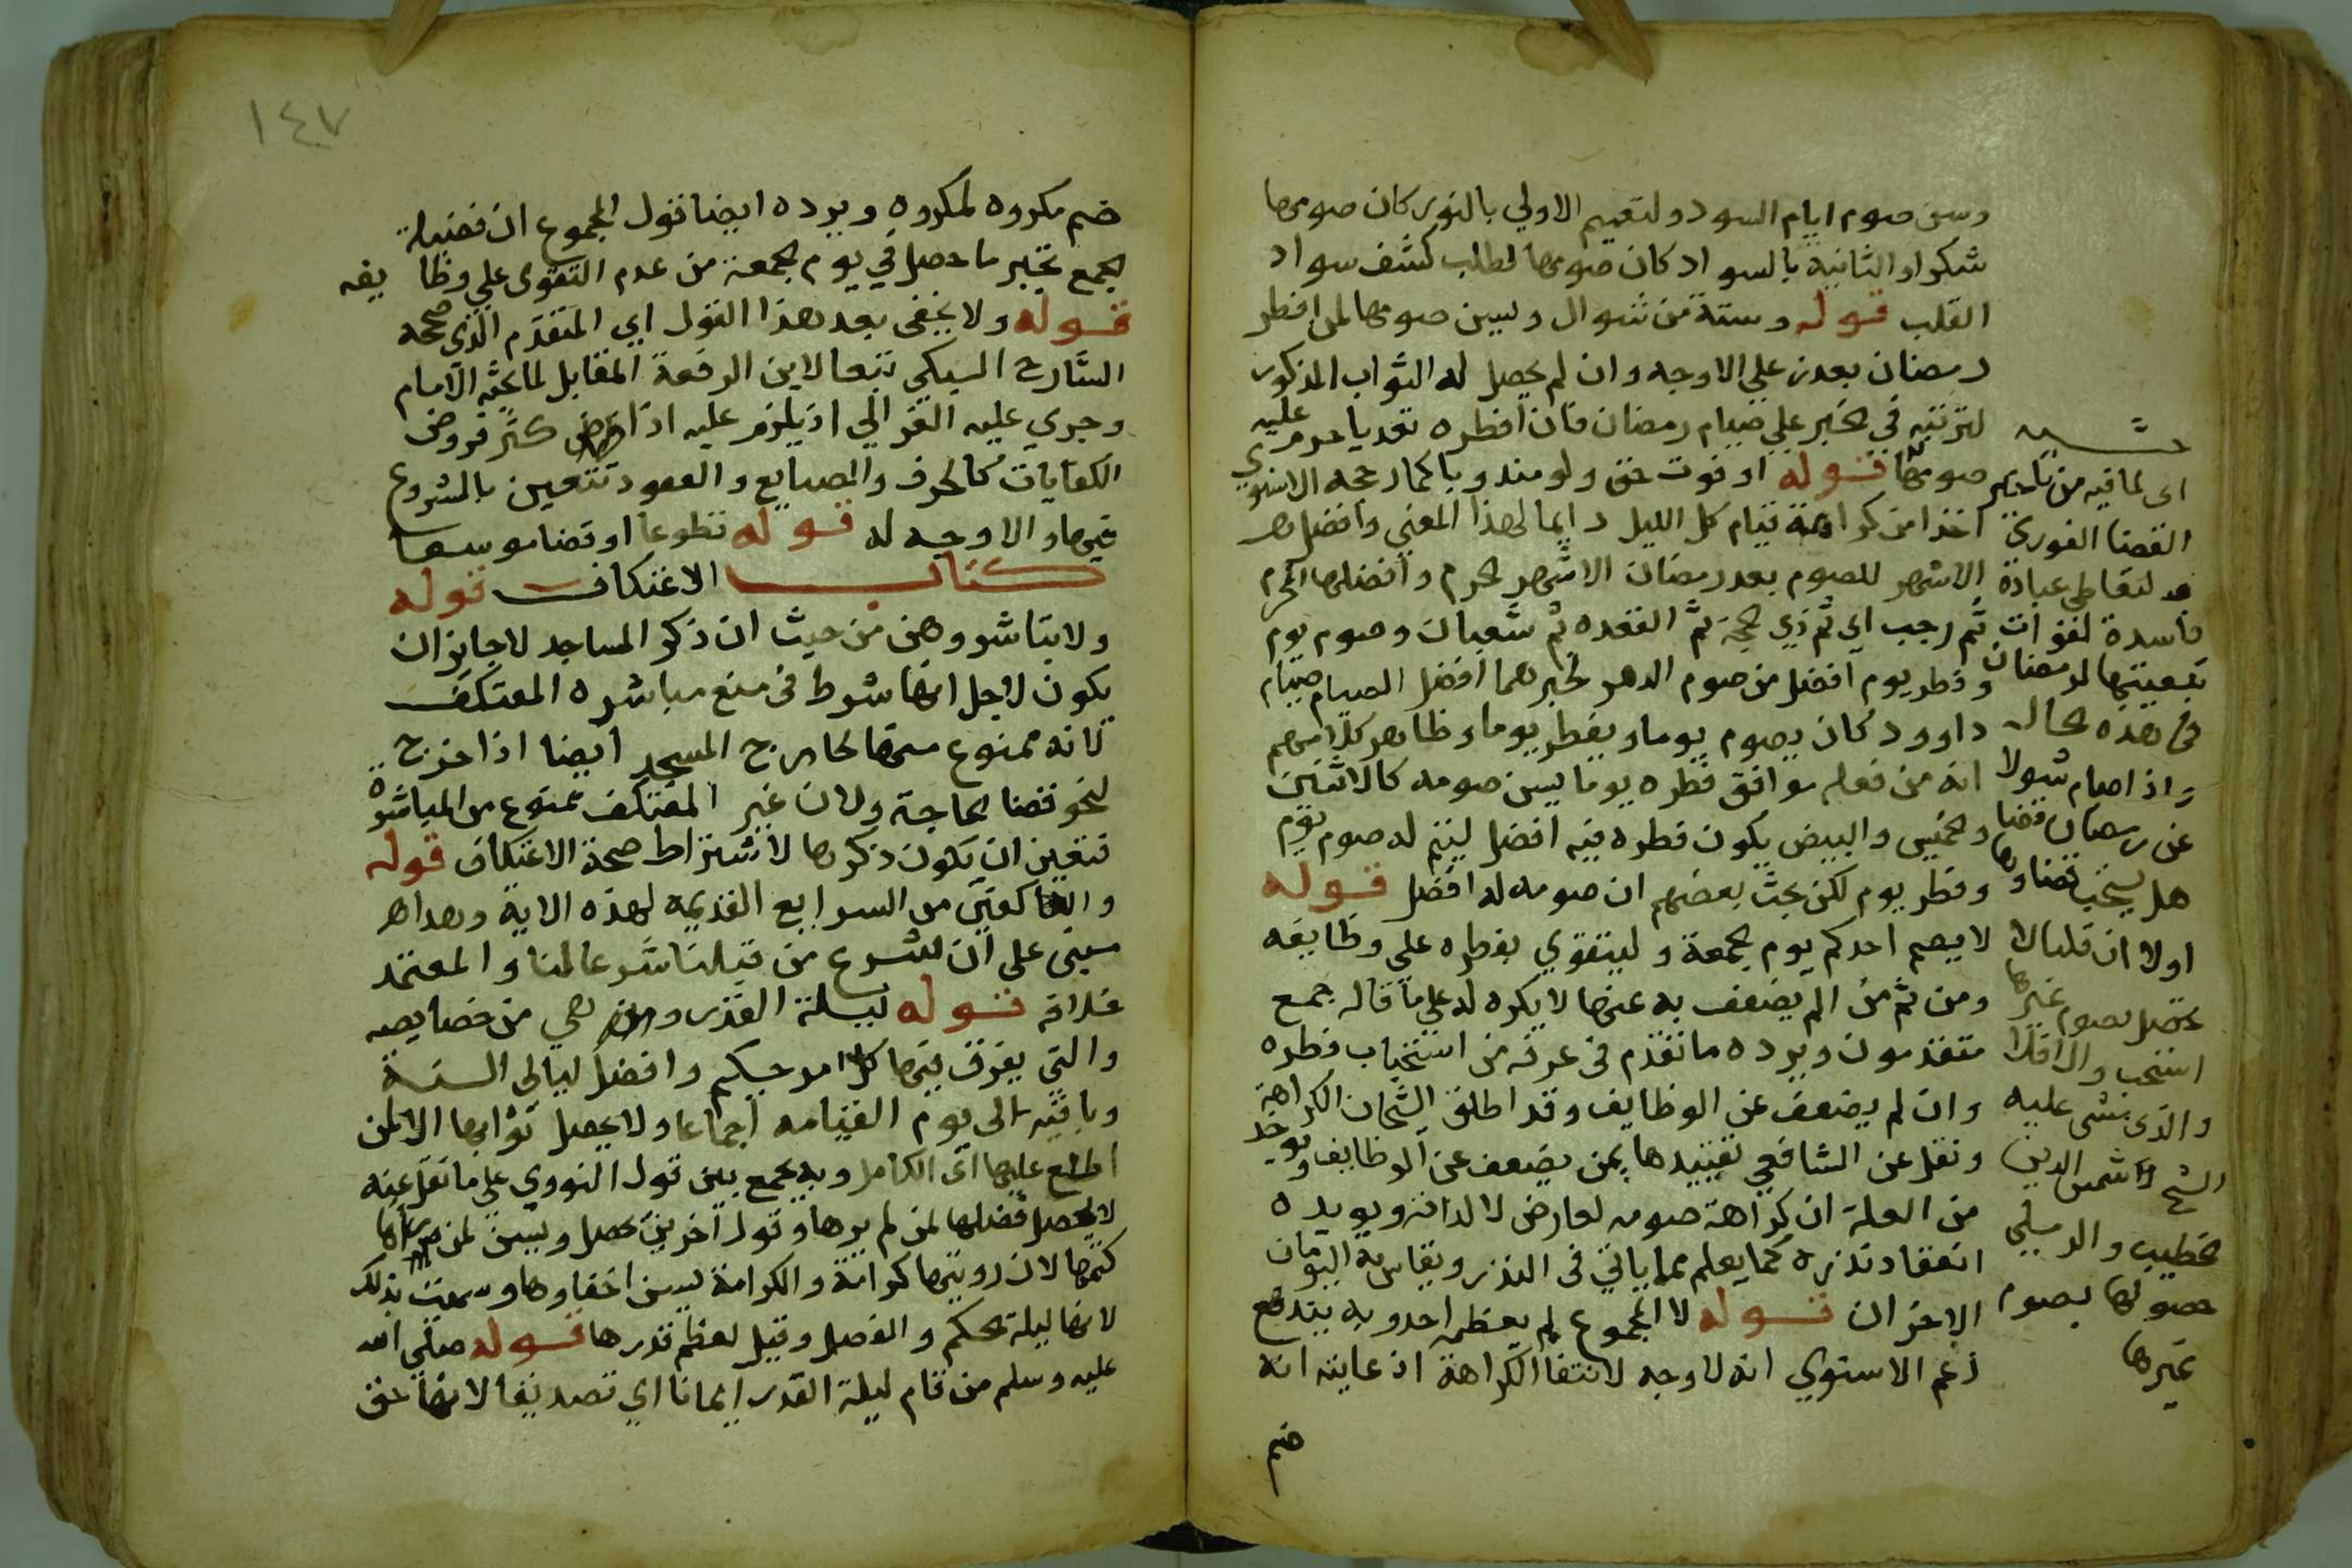 وسن صوم ايام السود ولتعميم الاولي بالنور كان صومها
شكرا والثانية بالسواد كان صومها لطلب كشف سواد
القلب قوله وستة من شوال ويسن صومها لمن افطر
رمضان بعذر علي الاوجه وان لم يحصل له الثواب المذكور
لترتبه في الخبر علي صيام رمضان فان افطره تعديا حرم عليه
صومها قوله او فوت حق ولو مندوبا كما رجحه الاسنوي
اخذا من كراهة قيام كل الليل دايما لهذا المعني وافضل
الاشهر للصوم بعد رمضان الاشهر الحرم وافضلها المحرم
ثم رجب اي ثم ذي الحجة ثم القعده ثم شعبان وصوم يوم
وفطر يوم افضل من صوم الدهر لخبرهما افضل الصيام صيام
داوود كان يصوم يوما ويفطر يوما وظاهر كلامهم
انه من فعله موافق فطره يوما يسن صومه كالاثنين
والخميس والبيض يكون فطره فيه افضل ليتم له صوم يوم
وفطر يوم لكن بحث بعضهم ان صومه له افضل قوله
لا يصم احدكم يوم الجمعة وليتقوي بفطره علي وظايفه
ومن ثم من لم يضعف به عنها لا يكره له علي ما قاله جمع
متقدمون ويرده ما تقدم في عرفه من استحباب فطره
وان لم يضعف عن الوظايف وقد اطلق الشيخان الكراهة
ونقل عن الشافعي تقييدها بمن يضعف عن الوظايف ويوخذ
من العلة ان كراهة صومه لعارض لا لذاته ويويده
انعقاد نذره كما يعلم مما ياتي في النذر ويقاس به اليومان
الاخران قوله لا المجموع لم يعظمه احد وبه يندفع
زعم الاسنوي انه لا وجه لانتفا الكراهة اذ غايته انه
ضم
اي لما فيه من تاخير
القضا الفوري
لتعاطي عبادة
فاسدة لفوات
تعيينها لرمضان
في هذه الحاله
واذا صام شوالا
عن رمضان قضا
هل يستحب قضاوها
اولا ان قلنا لا
تحصل بصوم غيرها
استحب والا فلا
والذي مشى عليه
الشيخ شمس الدين
الخطيب والرملي
حصولها بصوم
غيرها
١٤٧
ضم مكروه لمكروه ويرده ايضا قول المجموع ان فضيلة
الجمع تجبر ما حصل في يوم الجمعة من عدم التقوى علي وظايفه
قوله ولا يخفى بعد هذا القول اي المتقدم الذي صححه
الشارح السبكي تبعا لابن الرفعة المقابل لما بحثه الامام
وجري عليه الغزالي اذ يلزم عليه اذا كثر فروض
الكفايات كالحرف والصنايع والعقود تتعين بالشروع
فيها والاوجه له قوله تطوعا او قضا موسعا
كتاب الاعتكاف قوله
ولا تباشروهن من حيث ان ذكر المساجد لا جايز ان
يكون لاجل انها شرط في منع مباشرة المعتكف
لانه ممنوع منها خارج المسجد ايضا اذا خرج
لنحو قضا الحاجة ولان غير المعتكف ممنوع من المباشرة
فتعين ان يكون ذكرها لاشتراط صحة الاعتكاف قوله
والعاكفين من الشرايع القديمه لهذه الاية وهذا
مبني على ان شرع من قبلنا شرعا لنا والمعتمد
خلافه قوله ليلة القدر وهي من خصايصه
والتي يفرق فيها كل امر حكيم وافضل ليالي السنة
وباقيه الى يوم القيامه اجماعا ولا يحصل ثوابها الا لمن
اطلع عليها اي الكامل وبه يجمع بين قول النووي علي ما نقل عنه
لا يحصل فضلها لمن لم يرها وقول اخرين يحصل ويسن لمن راها
كتمها لان رويتها كرامة والكرامة يسن اخفاوها وسميت بذلك
لانها ليلة الحكم والفصل وقيل لعظم قدرها قوله صلى الله
عليه وسلم من قام ليلة القدر ايمانا اي تصديقا لانها حق